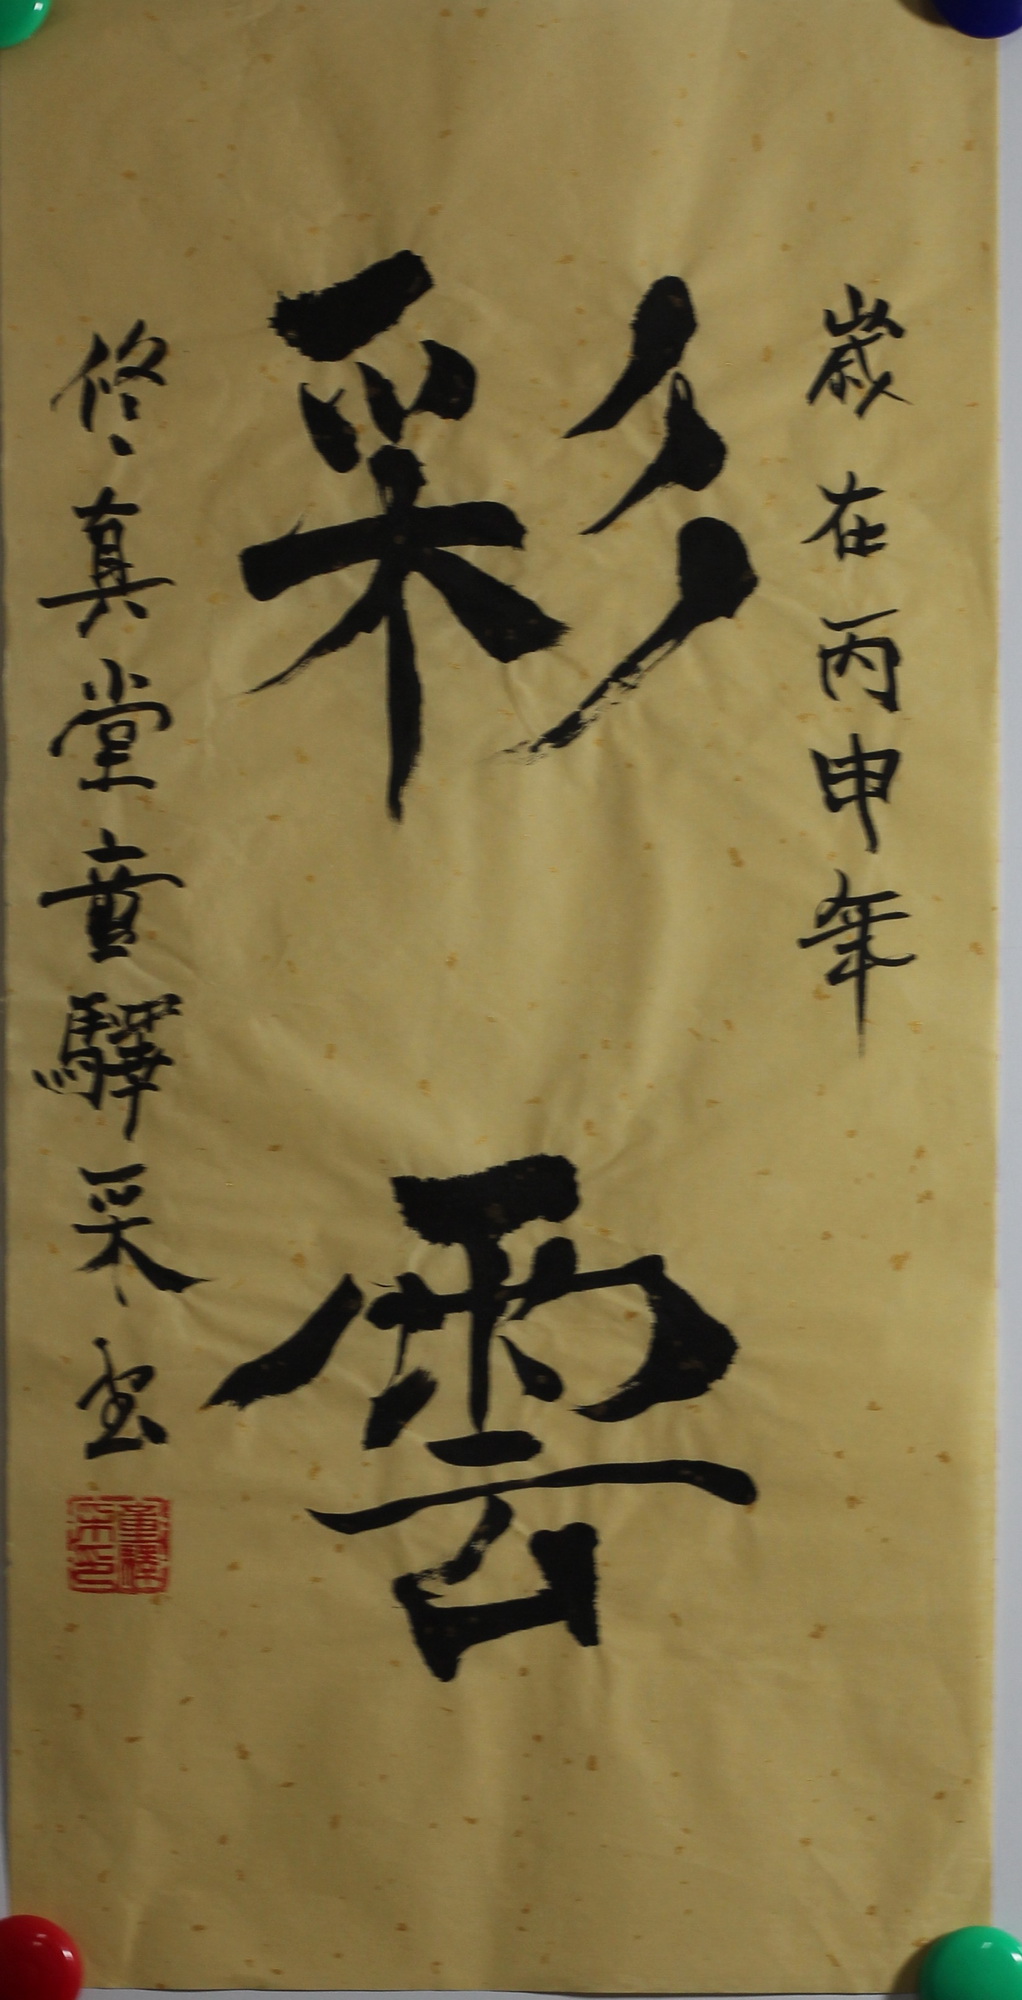 歲在丙申年
彩雲
修真堂童驛采書